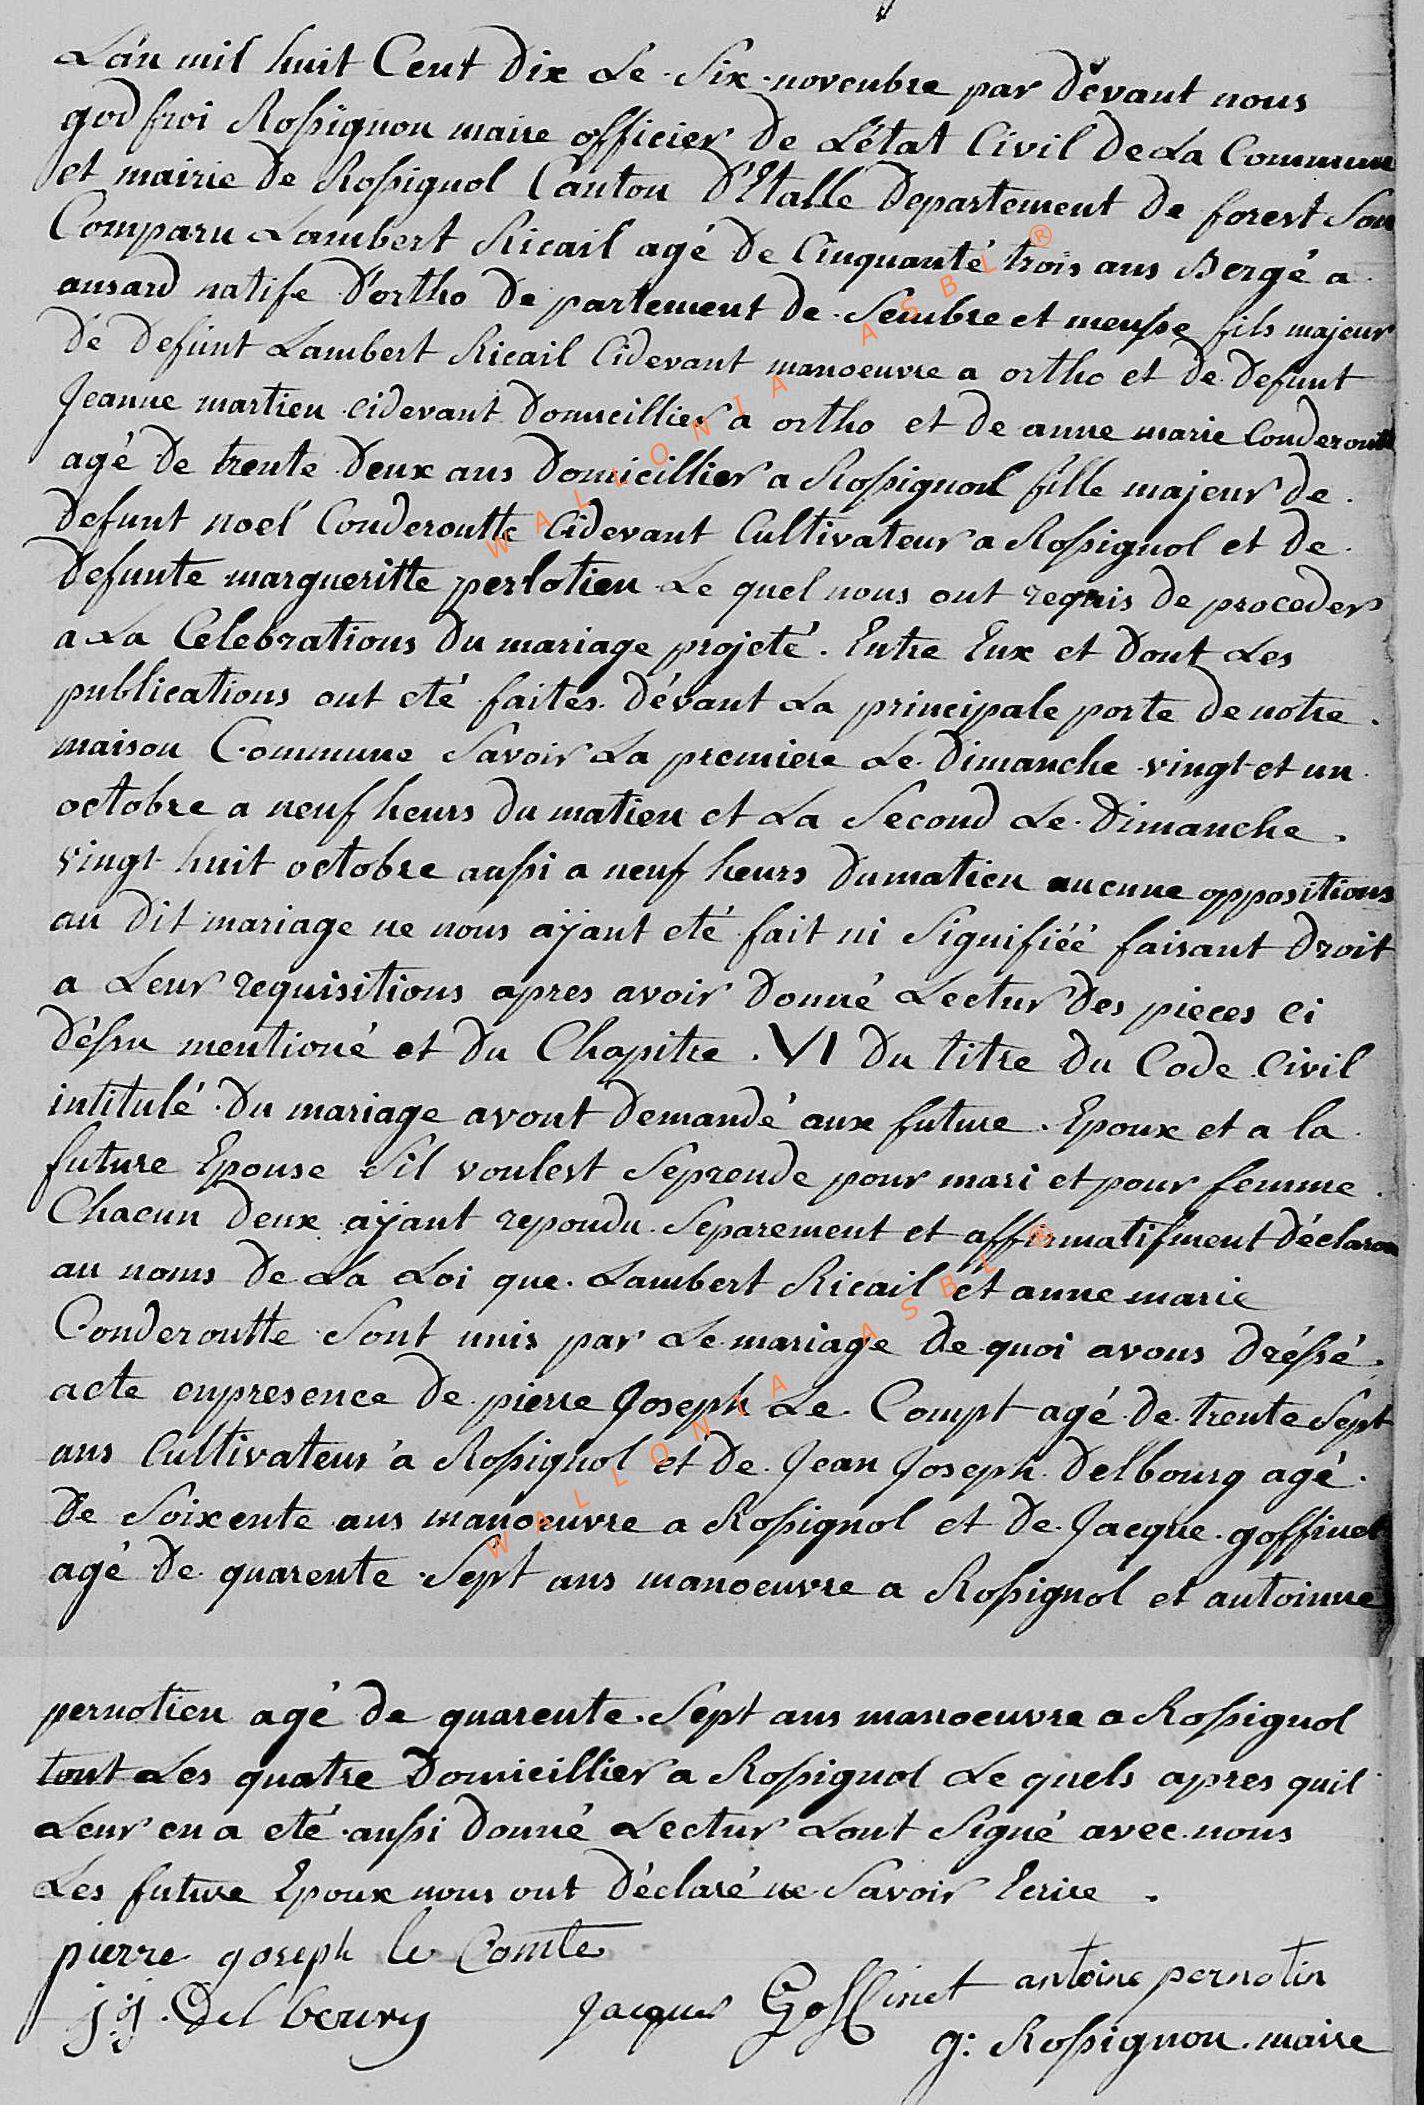 L'an mil huit Cent dix Le Six novenbre par dévant nous
godfroi Rossignon maire officier de L'état Civil de La Commune
et mairie de Rossignol Canton d'Etalle departement de forest Son
Comparu Lambert Ricail agé de Cinquanté trois ans Bergé a
ansard natife d'ortho de partement de Sembre et meusse fils majeur
dé defunt Lambert Ricail Cidevant manoeuvre a ortho et de defunt
Jeanne martien cidevant domicillier a ortho et de anne marie Conderoutte
agé de trente deux ans domicillier a Rossignol fille majeur de
defunt noel Conderoutte Cidevant Cultivateur a Rossignol et de
defunte margueritte perlotien Le quel nous ont requis de proceder
a La Celebrations du mariage projeté. Entre Eux et dont Les
publications ont eté faites dévant La principale porte de notre
maison Commune Savoir La premiere Le dimanche vingt et un
octobre a neuf heurs du matien et La Second Le dimanche
vingt huit octobre aussi a neuf heurs du matien aucune oppositions
au dit mariage ne nous aÿant eté fait ni Signifiéé faisant droit
a Leur requisitions apres avoir donné Lectur des pieces ci
déssu mentioné et du Chapitre VI du titre du Code Civil
intitulé du mariage avont demandé aux future Epoux et a la
future Epouse Sil voulest Seprende pour mari et pour femme
Chacun deux aÿant repondu Separement et affirmatifment déclaron
au noms de La Loi que Lambert Ricail et anne marie
Conderoutte Sont unis par Le mariage de quoi avons dréssé
acte enpresence de pierre Joseph Le Compt agé de trente Sept
ans Cultivateur a Rossignol et de Jean Joseph delbourg agé
de Soixente ans manoeuvre a Rossignol et de Jacque goffinet
agé de quarente Sept ans manoeuvre a Rossignol et antoinne
pernotien agé de quarente Sept ans manoeuvre a Rossignol
tout Les quatre domicillier a Rossignol Le quels apres quil
Leur en a eté aussi donné Lectur Lont Signé avec nous
Les future Epoux nous ont déclaré ne Savoir Ecrire
pierre joseph le Comte
antoine pernotin
j:j. Delbourg
Jacques Goffinet
g: Rossignon maire
WALLONIA ASBL ®
WALLONIA ASBL ®